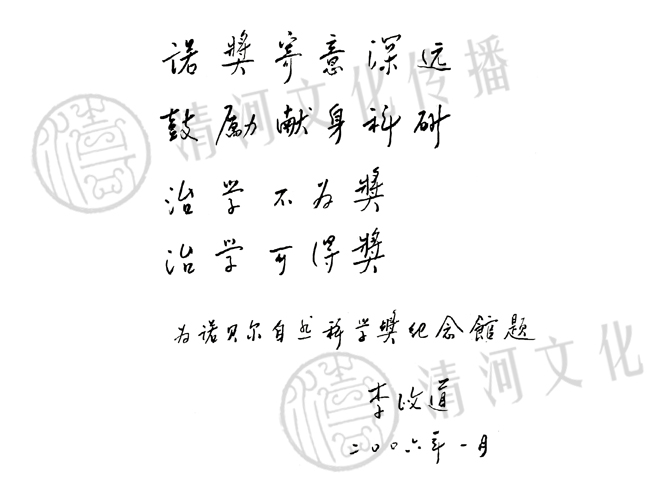 諾獎寄意深远
鼓勵献身科研
治学不为獎
治学可得獎
为诺贝尔自然科学獎纪念館题
李政道
二〇〇六年一月
清河文化传播
清河文化